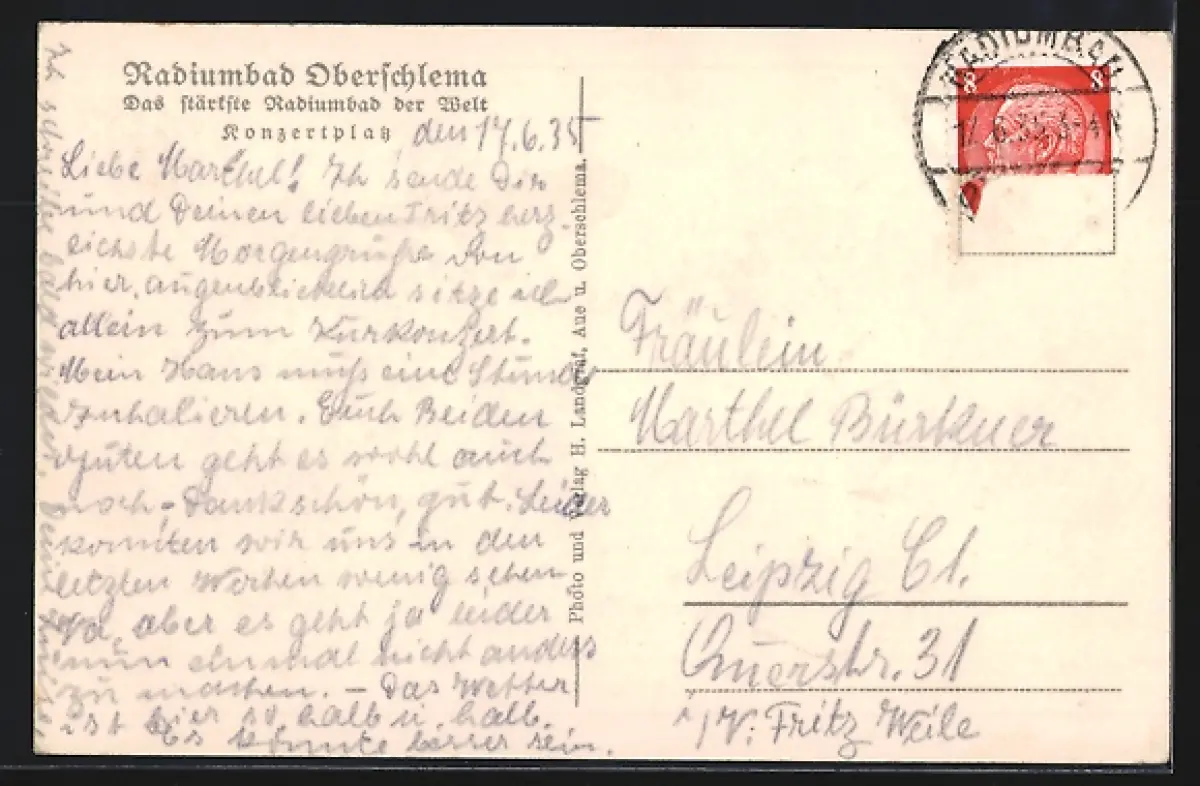 Radiumbad Oberschlema
Das stärkste Radiumbad der Welt
Konzertplatz
den 17.6.35
Liebe Marthel! Ich sende Dir
und Deinen lieben Fritz herz-
lichste Morgengrüße von
hier, augenblicklich sitze ich
allein zum Kurkonzert.
Mein Hans muß eine Stunde
inhalieren. Euch Beiden
Guten geht es wohl auch
noch - Dankschön, gut. Leider
konnten wir uns in den
letzten Wochen wenig sehen
Ja, aber es geht ja leider
nun einmal nicht anders
zu machen. - Das Wetter
ist hier so halb u. halb.
Es könnte besser sein.
Ich schreibe bald wieder. Deine
Photo und Verlag H. Landgraf, Aue u. Oberschlema.
RADIUMBAD
17.6.35.3-4
8 8
Fräulein
Marthel Bürkner
Leipzig C1.
Querstr. 31
i/V. Fritz Weile